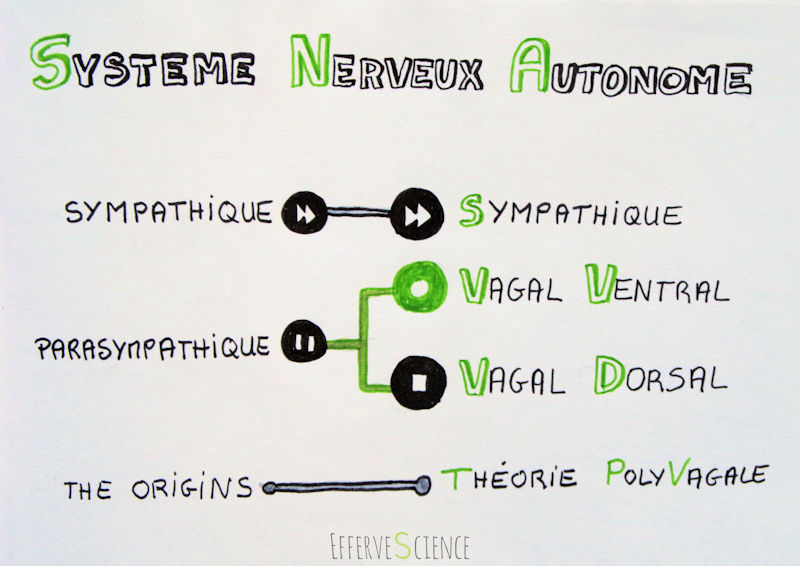 SYSTEME NERVEUX AUTONOME
SYMPATHIQUE SYMPATHIQUE
VAGAL VENTRAL
PARASYMPATHIQUE
VAGAL DORSAL
THE ORIGINS THÉORIE POLYVAGALE
EFFERVESCIENCE